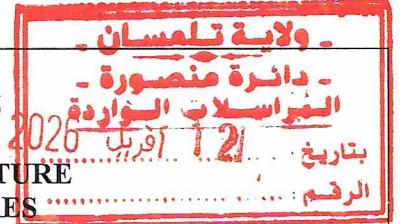 - ولاية تلمسان -
- دائرة منصورة -
المراسلات الواردة
بتاريخ : 12 أفريل 2026
الرقم :
TURE
ES